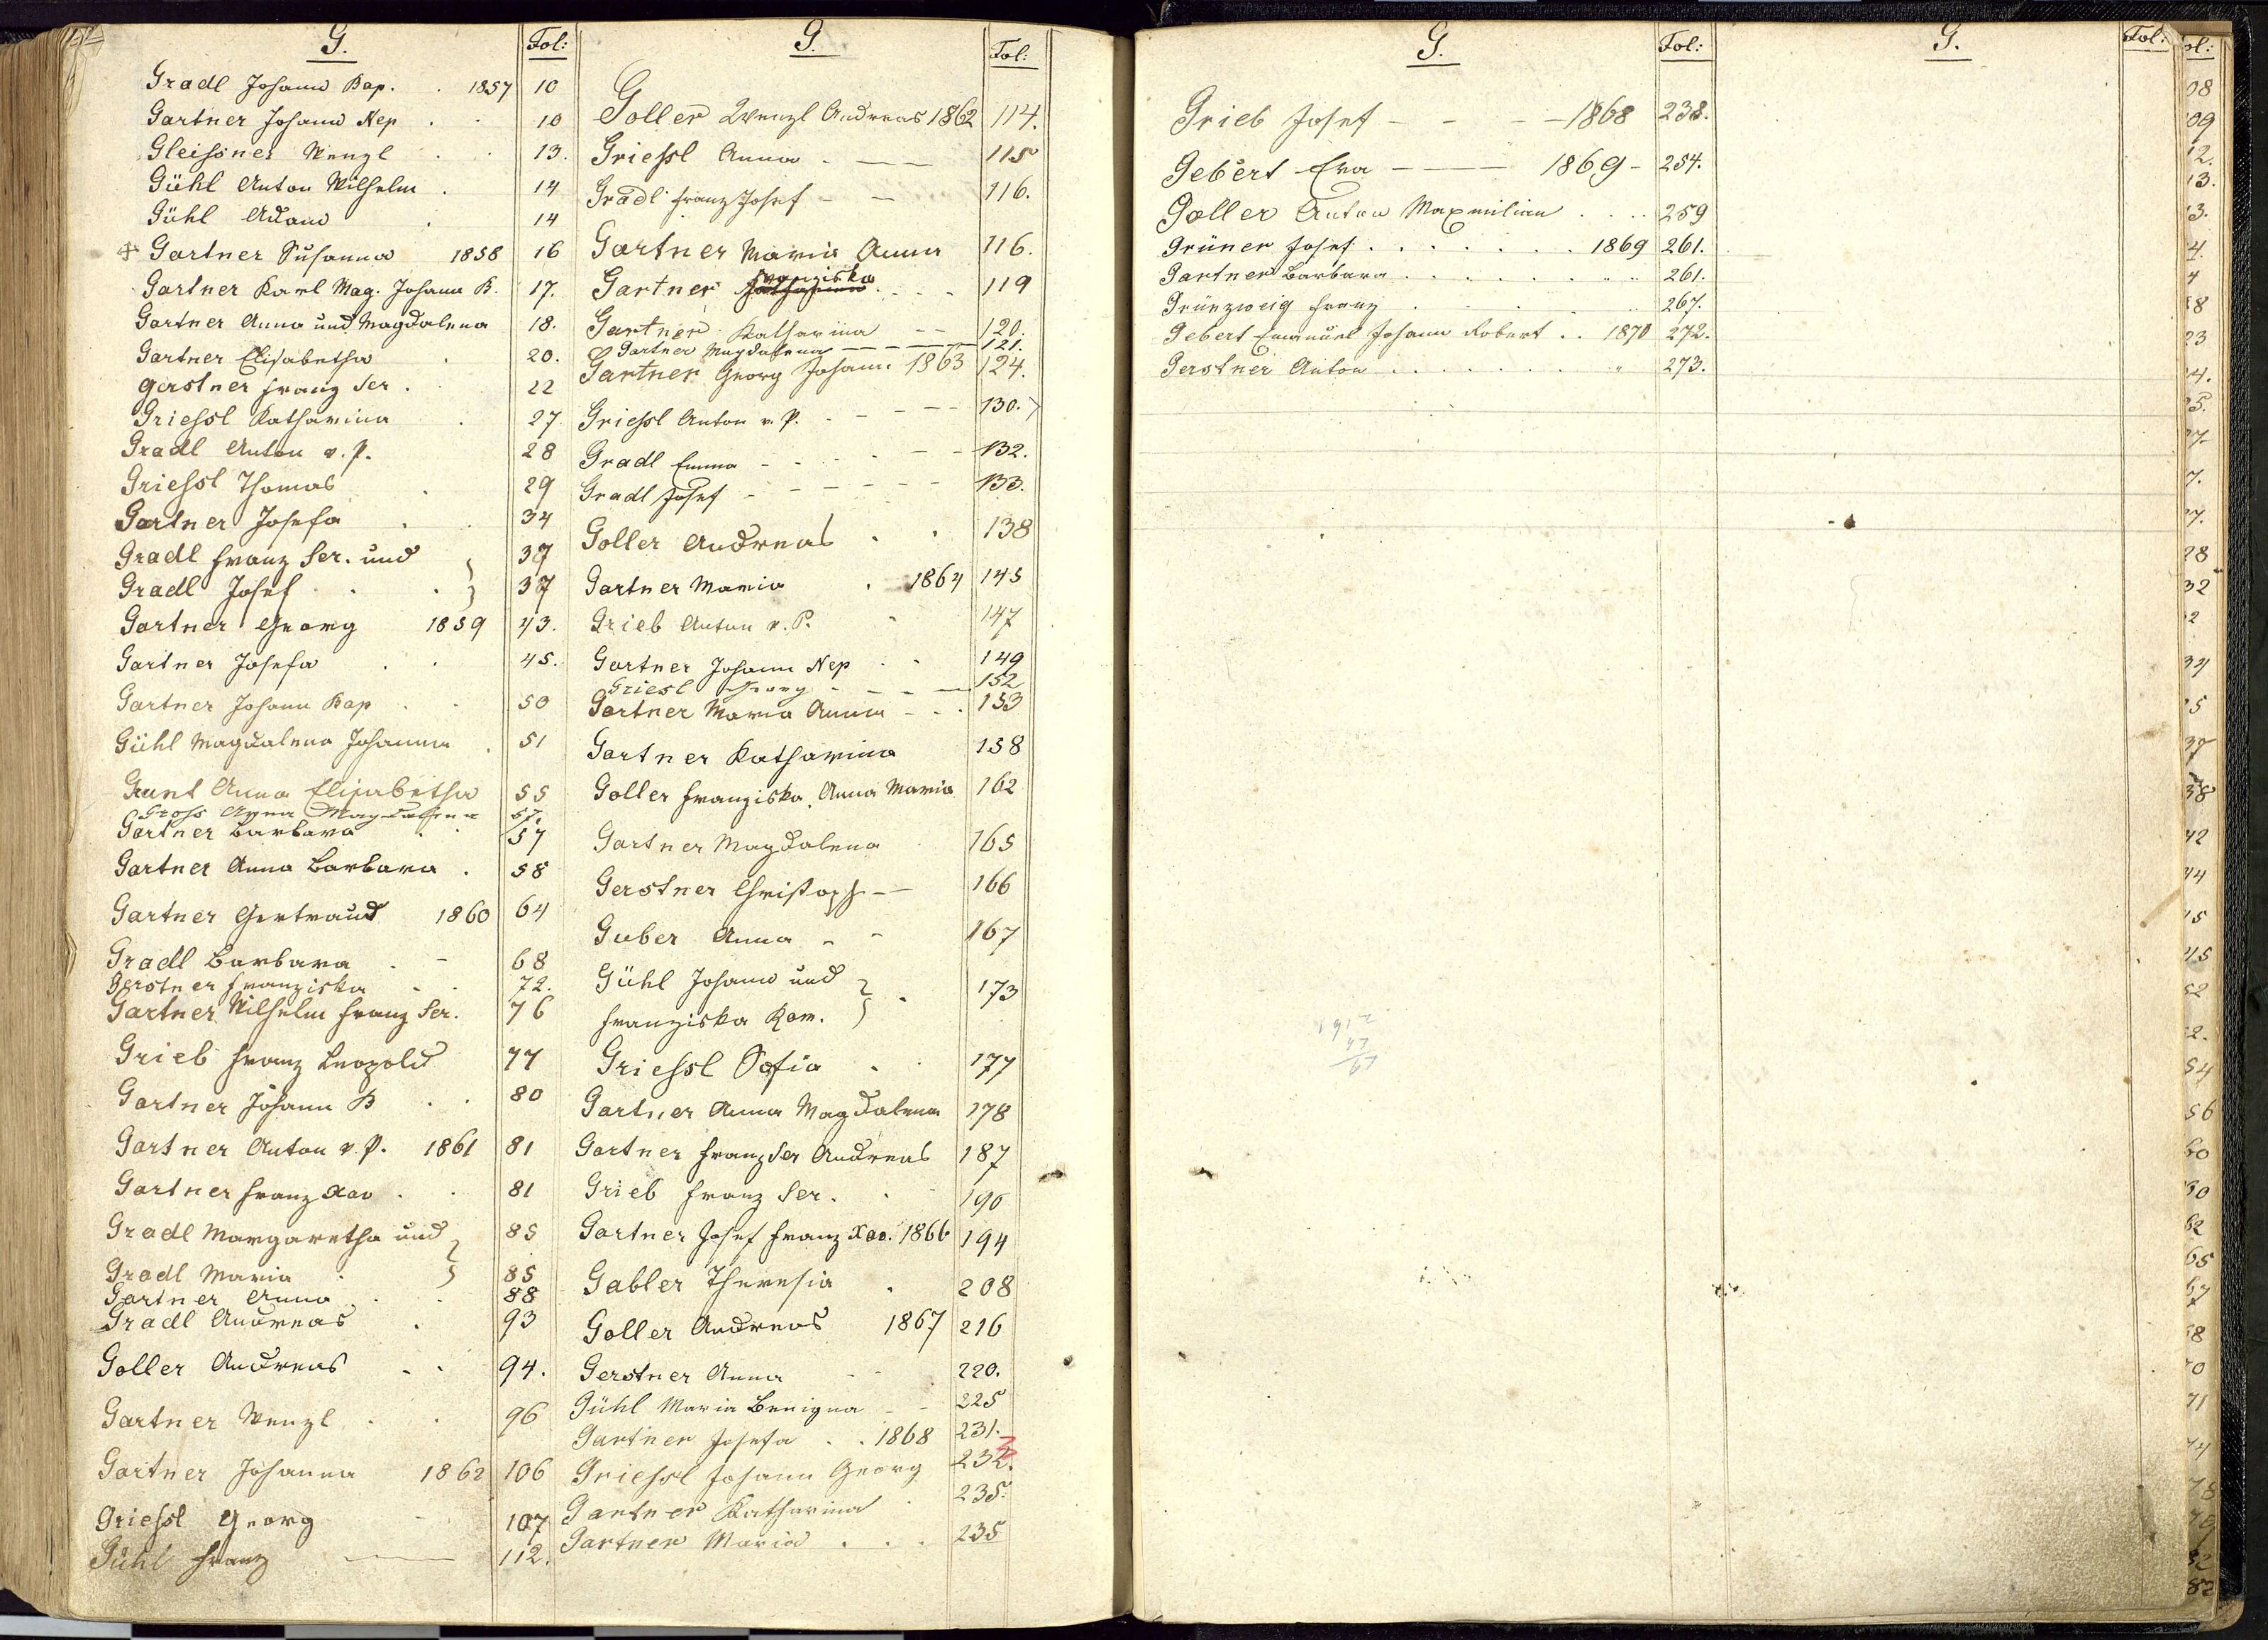 G. Fol:
Gradl Johann Bap. . 1857 10
Gartner Johann Nep . . 10
Gleissner Wenzl . . 13.
Gühl Anton Wilhelm . 14
Gühl Adam . 14
Gartner Susanna 1858 16
Gartner Karl Mag. Johann B. 17.
Gartner Anna und Magdalena 18.
Gartner Elisabetha . 20.
Gerstner Franz Ser . 22
Griessl Katharina . 27.
Gradl Anton v. P. 28
Griessl Thomas . 29
Gartner Josefa . . 34
Gradl Franz Ser. und 37
Gradl Josef . . 37
Gartner Georg 1859 43.
Gartner Josefa . . 45.
Gartner Johann Bap . . 50
Gühl Magdalena Johanna . 51
Anna Elisabetha 55
Gross Anna Magdalena 57.
Gartner Barbara . . 57
Gartner Anna Barbara . 58
Gartner Gertraud 1860 64
Gradl Barbara . - 68
Gerstner Franziska . . 72.
Gartner Wilhelm Franz Ser. 76
Grieb Franz Leopold 77
Gartner Johann B . . 80
Gartner Anton v. P. 1861 81
Gartner Franz Xav . . 81
Gradl Margaretha und 85
Gradl Maria . 85
Gartner Anna . . 88
Gradl Andreas . 93
Goller Andreas . . 94.
Gartner Wenzl . . 96
Gartner Johanna 1862 106
Griessl Georg - 107
Gühl Franz — 112.
G. Fol:
Goller Wenzl Andreas 1862 114.
Griessl Anna . — 115
Gradl Franz Josef - - 116.
Gartner Maria Anna 116.
Gartner Franziska . - - 119
Gartner Katharina - - 120.
Gartner Magdalena - - - - 121.
Gartner Georg Johann 1863 124.
Griessl Anton v. P. - - - - 130.
Gradl Emma - - - - - 132.
Gradl Josef - - - - - - 133.
Goller Andreas . . 138
Gartner Maria . 1864 145
Grieb Anton v. P. - 147
Gartner Johann Nep . . 149
Griesl Georg - - - - 152
Gartner Maria Anna - - . 153
Gartner Katharina 158
Goller Franziska, Anna Maria 162
Gartner Magdalena 165
Gerstner Christoph - - 166
Guber Anna - - 167
Gühl Johann und
Franziska Rom. . 173
Griessl Sofia . . 177
Gartner Anna Magdalena 178
Gartner Franz Ser Andreas 187
Grieb Franz Ser. . - 190
Gartner Josef Franz Xav. 1866 194
Gabler Theresia . 208
Goller Andreas 1867 216
Gerstner Anna - - 220.
Gühl Maria Benigna - - 225
Gartner Josefa . . 1868 231.
Griessl Johann Georg 232.
Gartner Katharina . 235.
Gartner Maria . . . 235
G. Fol:
Grieb Josef - - - - 1868 238.
Gebert Eva - — 1869 - 254.
Goller Anton Maxmilian . . . . 259
Grüner Josef . . . . . . . 1869 261.
Gartner Barbara . . . . . . " " 261.
Grünzweig Franz . . . . . . 267.
Gebert Emanuel Johann Robert . . 1870 272.
Gerstner Anton . . . . . . . " 273.
G. Fol: